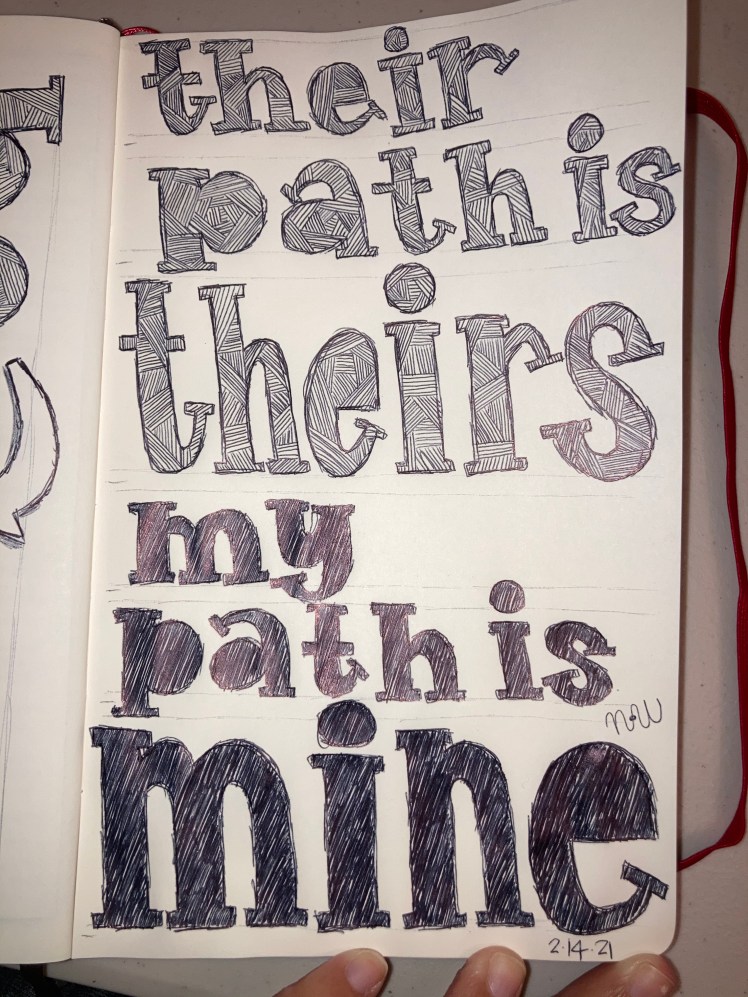 their
path is
theirs
my
path is
mine
now
2.14.21